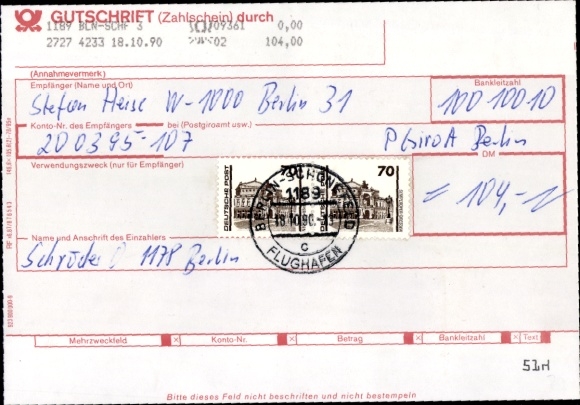 GUTSCHRIFT (Zahlschein) durch
1189 BLN-SCHF 3 09361 0,00
2727 4233 18.10.90 02 104,00
(Annahmevermerk)
Empfänger (Name und Ort) Bankleitzahl
Stefan Heise W-1000 Berlin 31 100 100 10
Konto-Nr. des Empfängers bei (Postgiroamt usw.)
200395-107 PGiroA Berlin
Verwendungszweck (nur für Empfänger) DM
= 104,-
DEUTSCHE POST 70 70
BERLIN-SCHÖNEFELD
1189
18.10.90
c
FLUGHAFEN
Name und Anschrift des Einzahlers
Schröder 1178 Berlin
Mehrzweckfeld X Konto-Nr. X Betrag X Bankleitzahl X Text
51H
Bitte dieses Feld nicht beschriften und nicht bestempeln